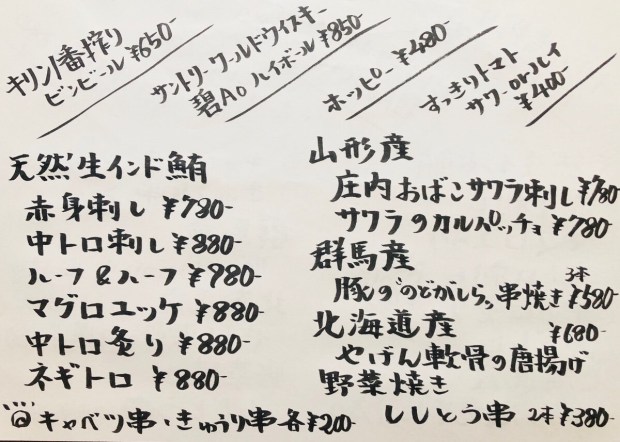 キリン一番搾り
ビンビール ¥650-
サントリーワールドウイスキー
碧Ao ハイボール ¥850-
ホッピー ¥480-
すっきりトマト
サワー or ハイ
¥400-
天然生インド鮪
赤身刺し ¥780-
中トロ刺し ¥880-
ハーフ&ハーフ ¥980-
マグロユッケ ¥880-
中トロ炙り ¥880-
ネギトロ ¥880-
キャベツ串・きゅうり串 各¥200-
山形産
庄内おばこサワラ刺し ¥780-
サワラのカルパッチョ ¥780-
群馬産
豚の“のどがしら„串焼き 3本 ¥580-
北海道産
やげん軟骨の唐揚げ ¥680-
野菜焼き
ししとう串 2本 ¥380-